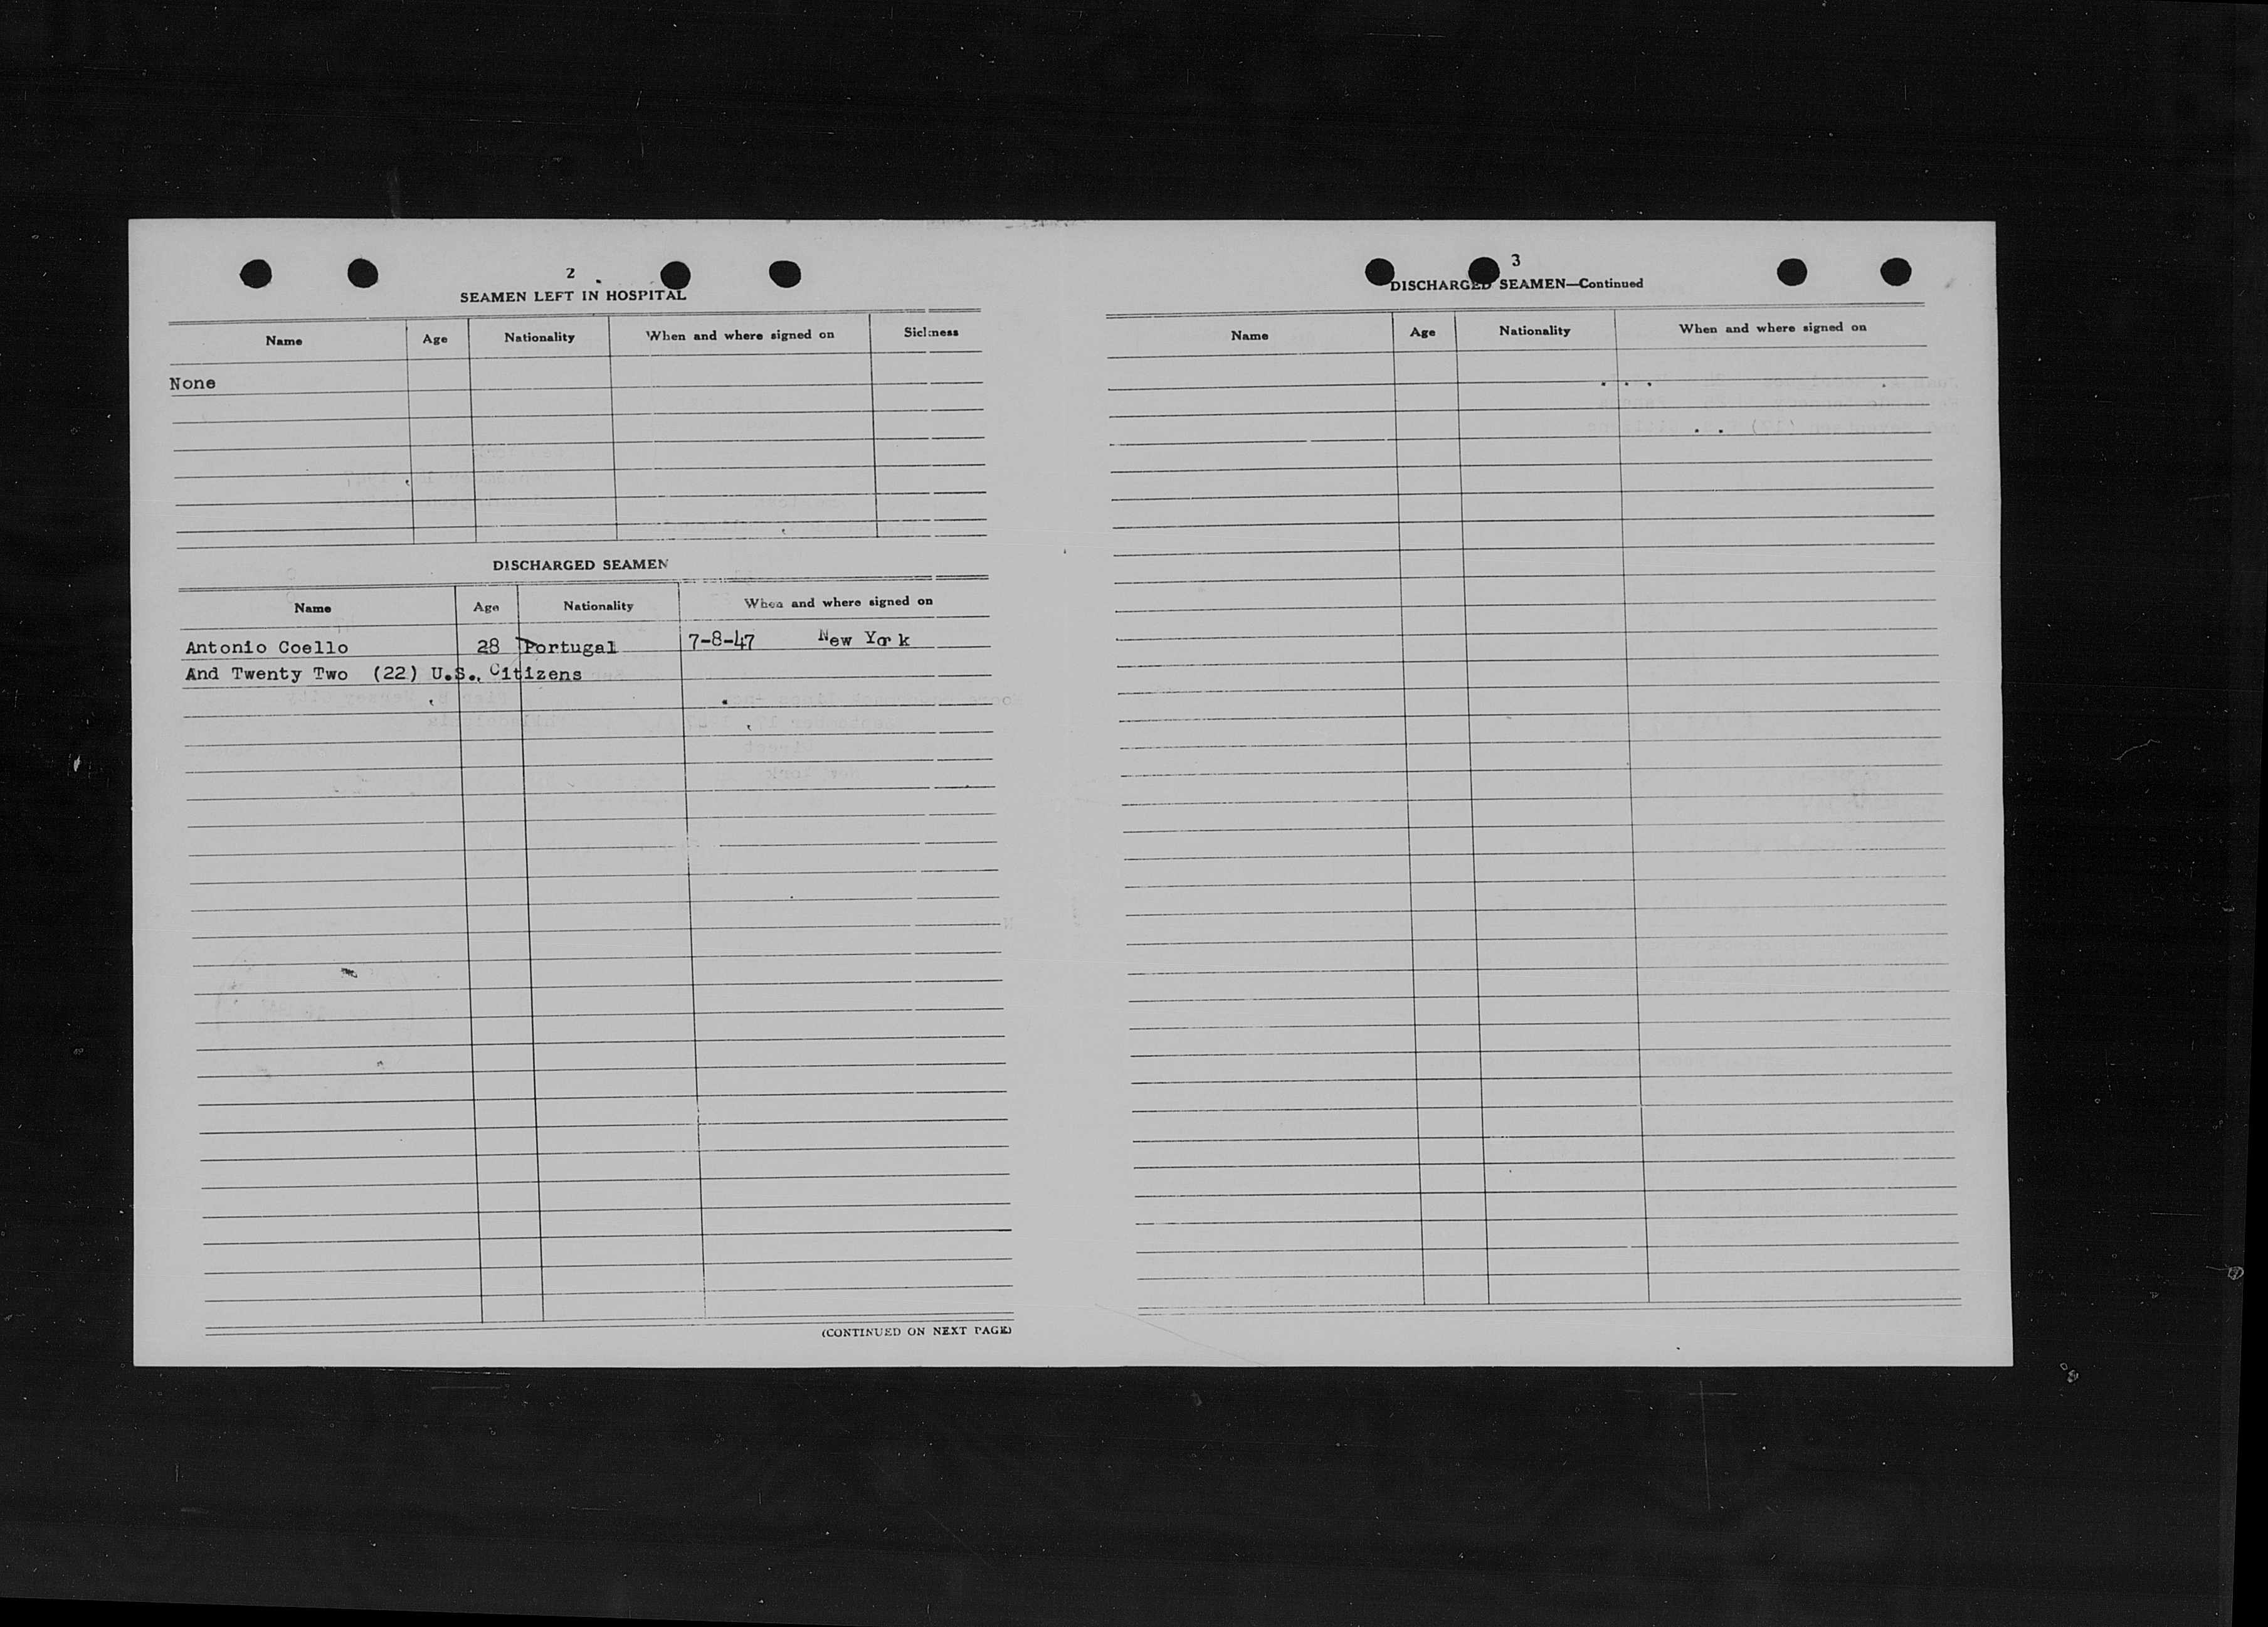 2
SEAMEN LEFT IN HOSPITAL
Name Age Nationality When and where signed on Sickness
None
DISCHARGED SEAMEN
Name Age Nationality When and where signed on
Antonio Coello 28 Portugal 7-8-47 New York
And Twenty Two (22) U.S., Citizens
(CONTINUED ON NEXT PAGE)
3
DISCHARGED SEAMEN—Continued
Name Age Nationality When and where signed on